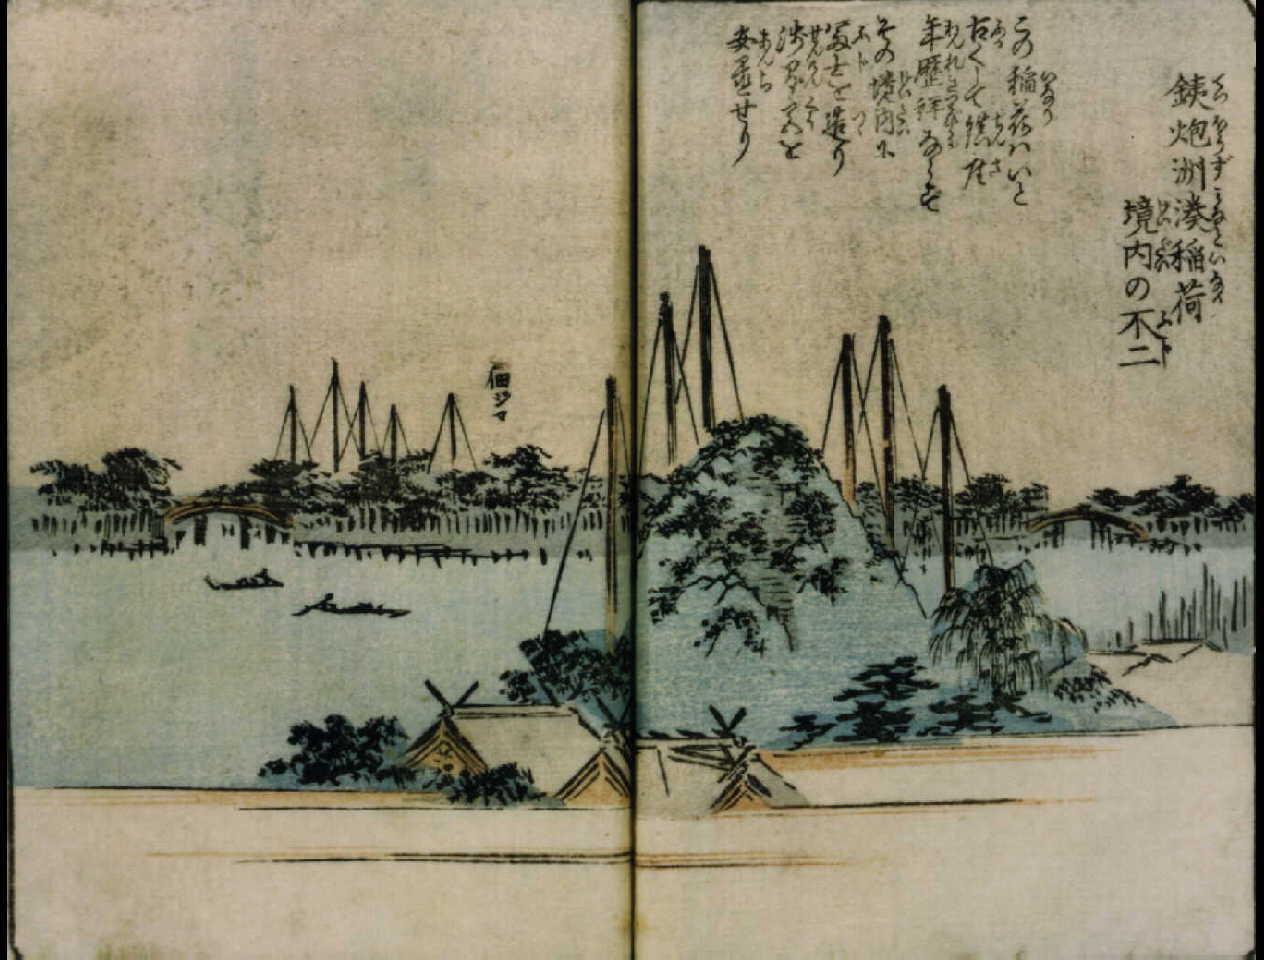 鉄炮洲湊稲荷
境内の不二
この稲荷ハいと
古くして鎮座
年歴詳ならず
その境内に
富士を造り
浅間宮を
安置せり
佃ジマ